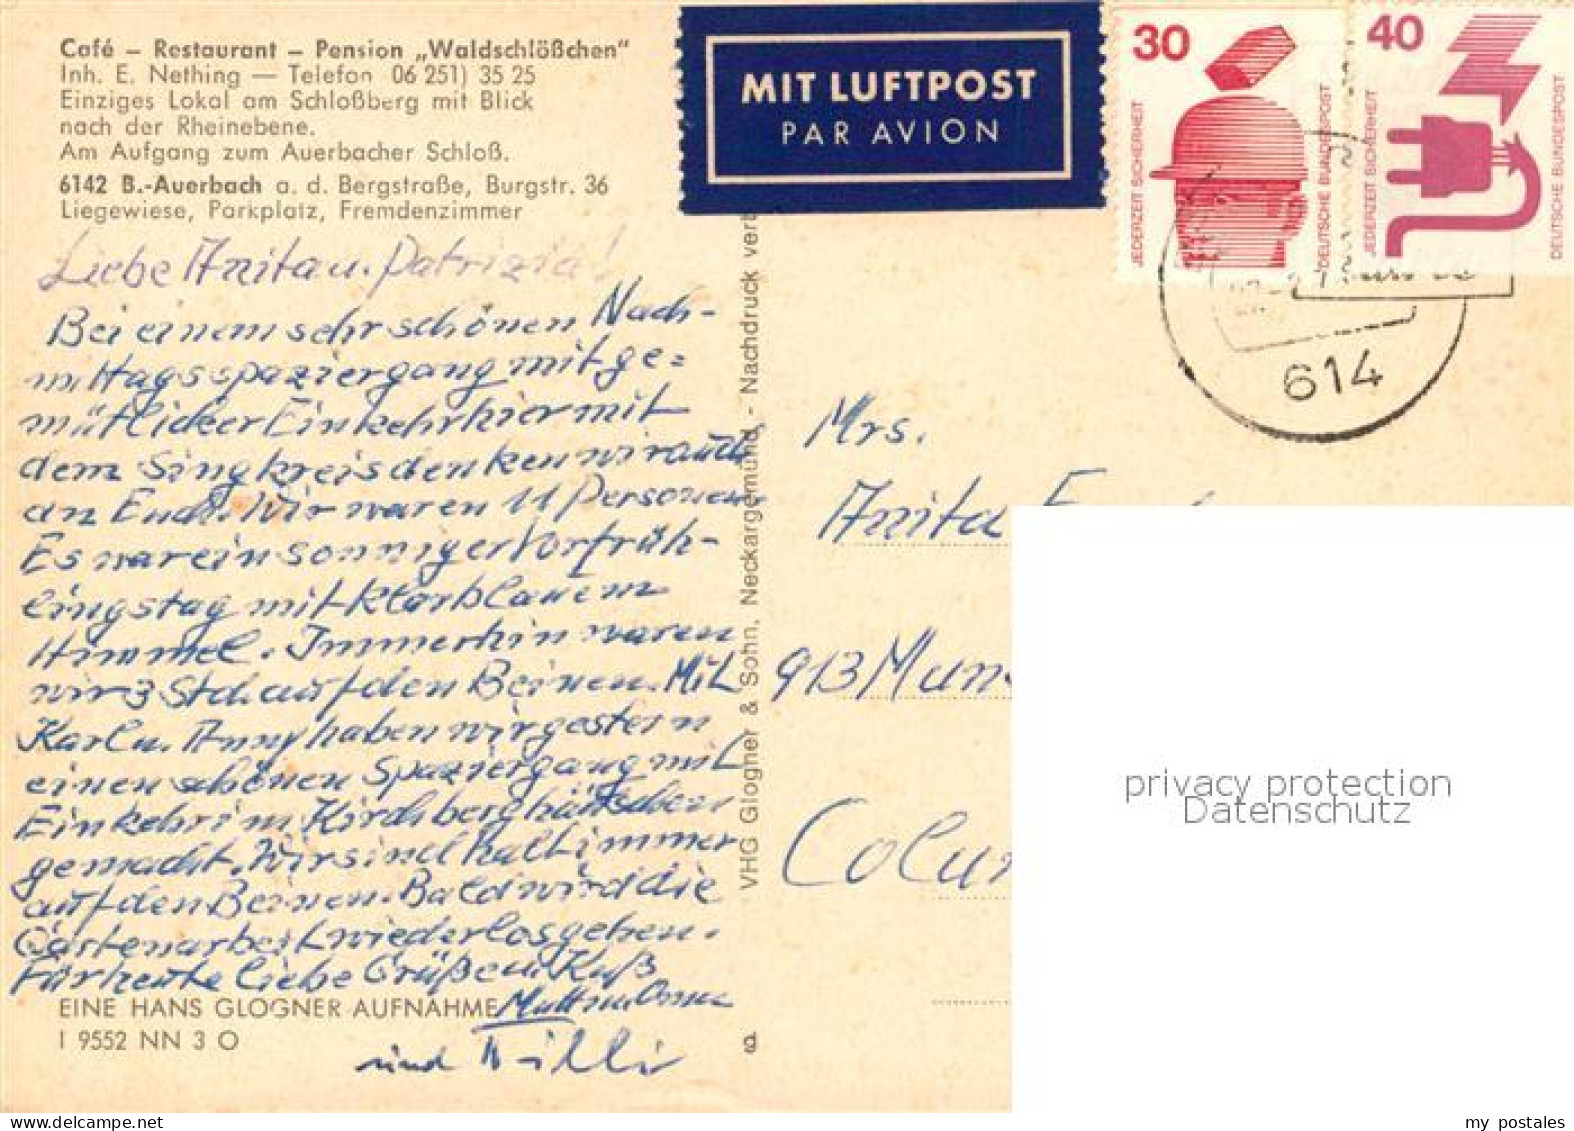 Café – Restaurant – Pension „Waldschlößchen"
Inh. E. Nething — Telefon 06 251) 35 25
Einziges Lokal am Schloßberg mit Blick
nach der Rheinebene.
Am Aufgang zum Auerbacher Schloß.
6142 B.-Auerbach a. d. Bergstraße, Burgstr. 36
Liegewiese, Parkplatz, Fremdenzimmer
MIT LUFTPOST
PAR AVION
30
JEDERZEIT SICHERHEIT
DEUTSCHE BUNDESPOST
40
JEDERZEIT SICHERHEIT
DEUTSCHE BUNDESPOST
614
Liebe Anita u. Patrizia!
Bei einem sehr schönen Nach-
mittagsspaziergang mit ge=
mütlicher Einkehr hier mit
dem Singkreis denken wir auch
an Euch. Wir waren 11 Personen
Es war ein sonniger Vorfrüh-
lingstag mit klarblauem
Himmel. Immerhin waren
wir 3 Std. auf den Beinen. Mit
Karl u. Anny haben wir gestern
einen schönen Spaziergang mit
Einkehr im Kirchberghäuschen
gemacht. Wir sind halt immer
auf den Beinen. Bald wird die
Gartenarbeit wieder losgehen.
Für heute liebe Grüße u. Kuß
Mutti u. Oma
und Willi
EINE HANS GLOGNER AUFNAHME
I 9552 NN 3 O
VHG Glogner & Sohn, Neckargemünd - Nachdruck verb
Mrs.
Anita
913 Mun
Colu
privacy protection
Datenschutz
my postales